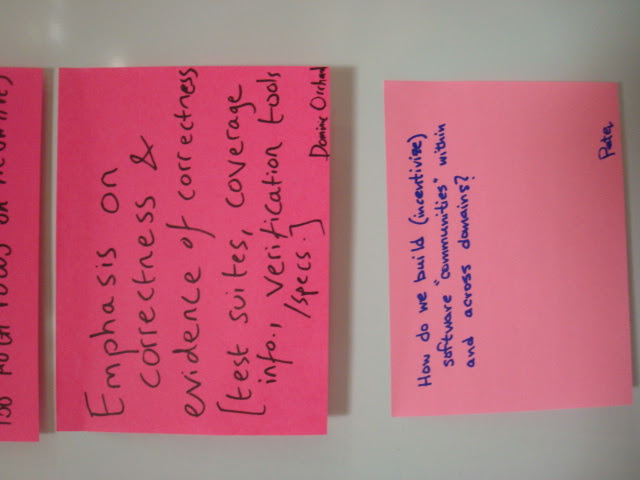 Emphasis on
correctness &
evidence of correctness
[test suites, coverage
info., verification tools
/specs.]
Dominic Orchard
How do we build (incentivise)
software "communities" within
and across domains?
Peter